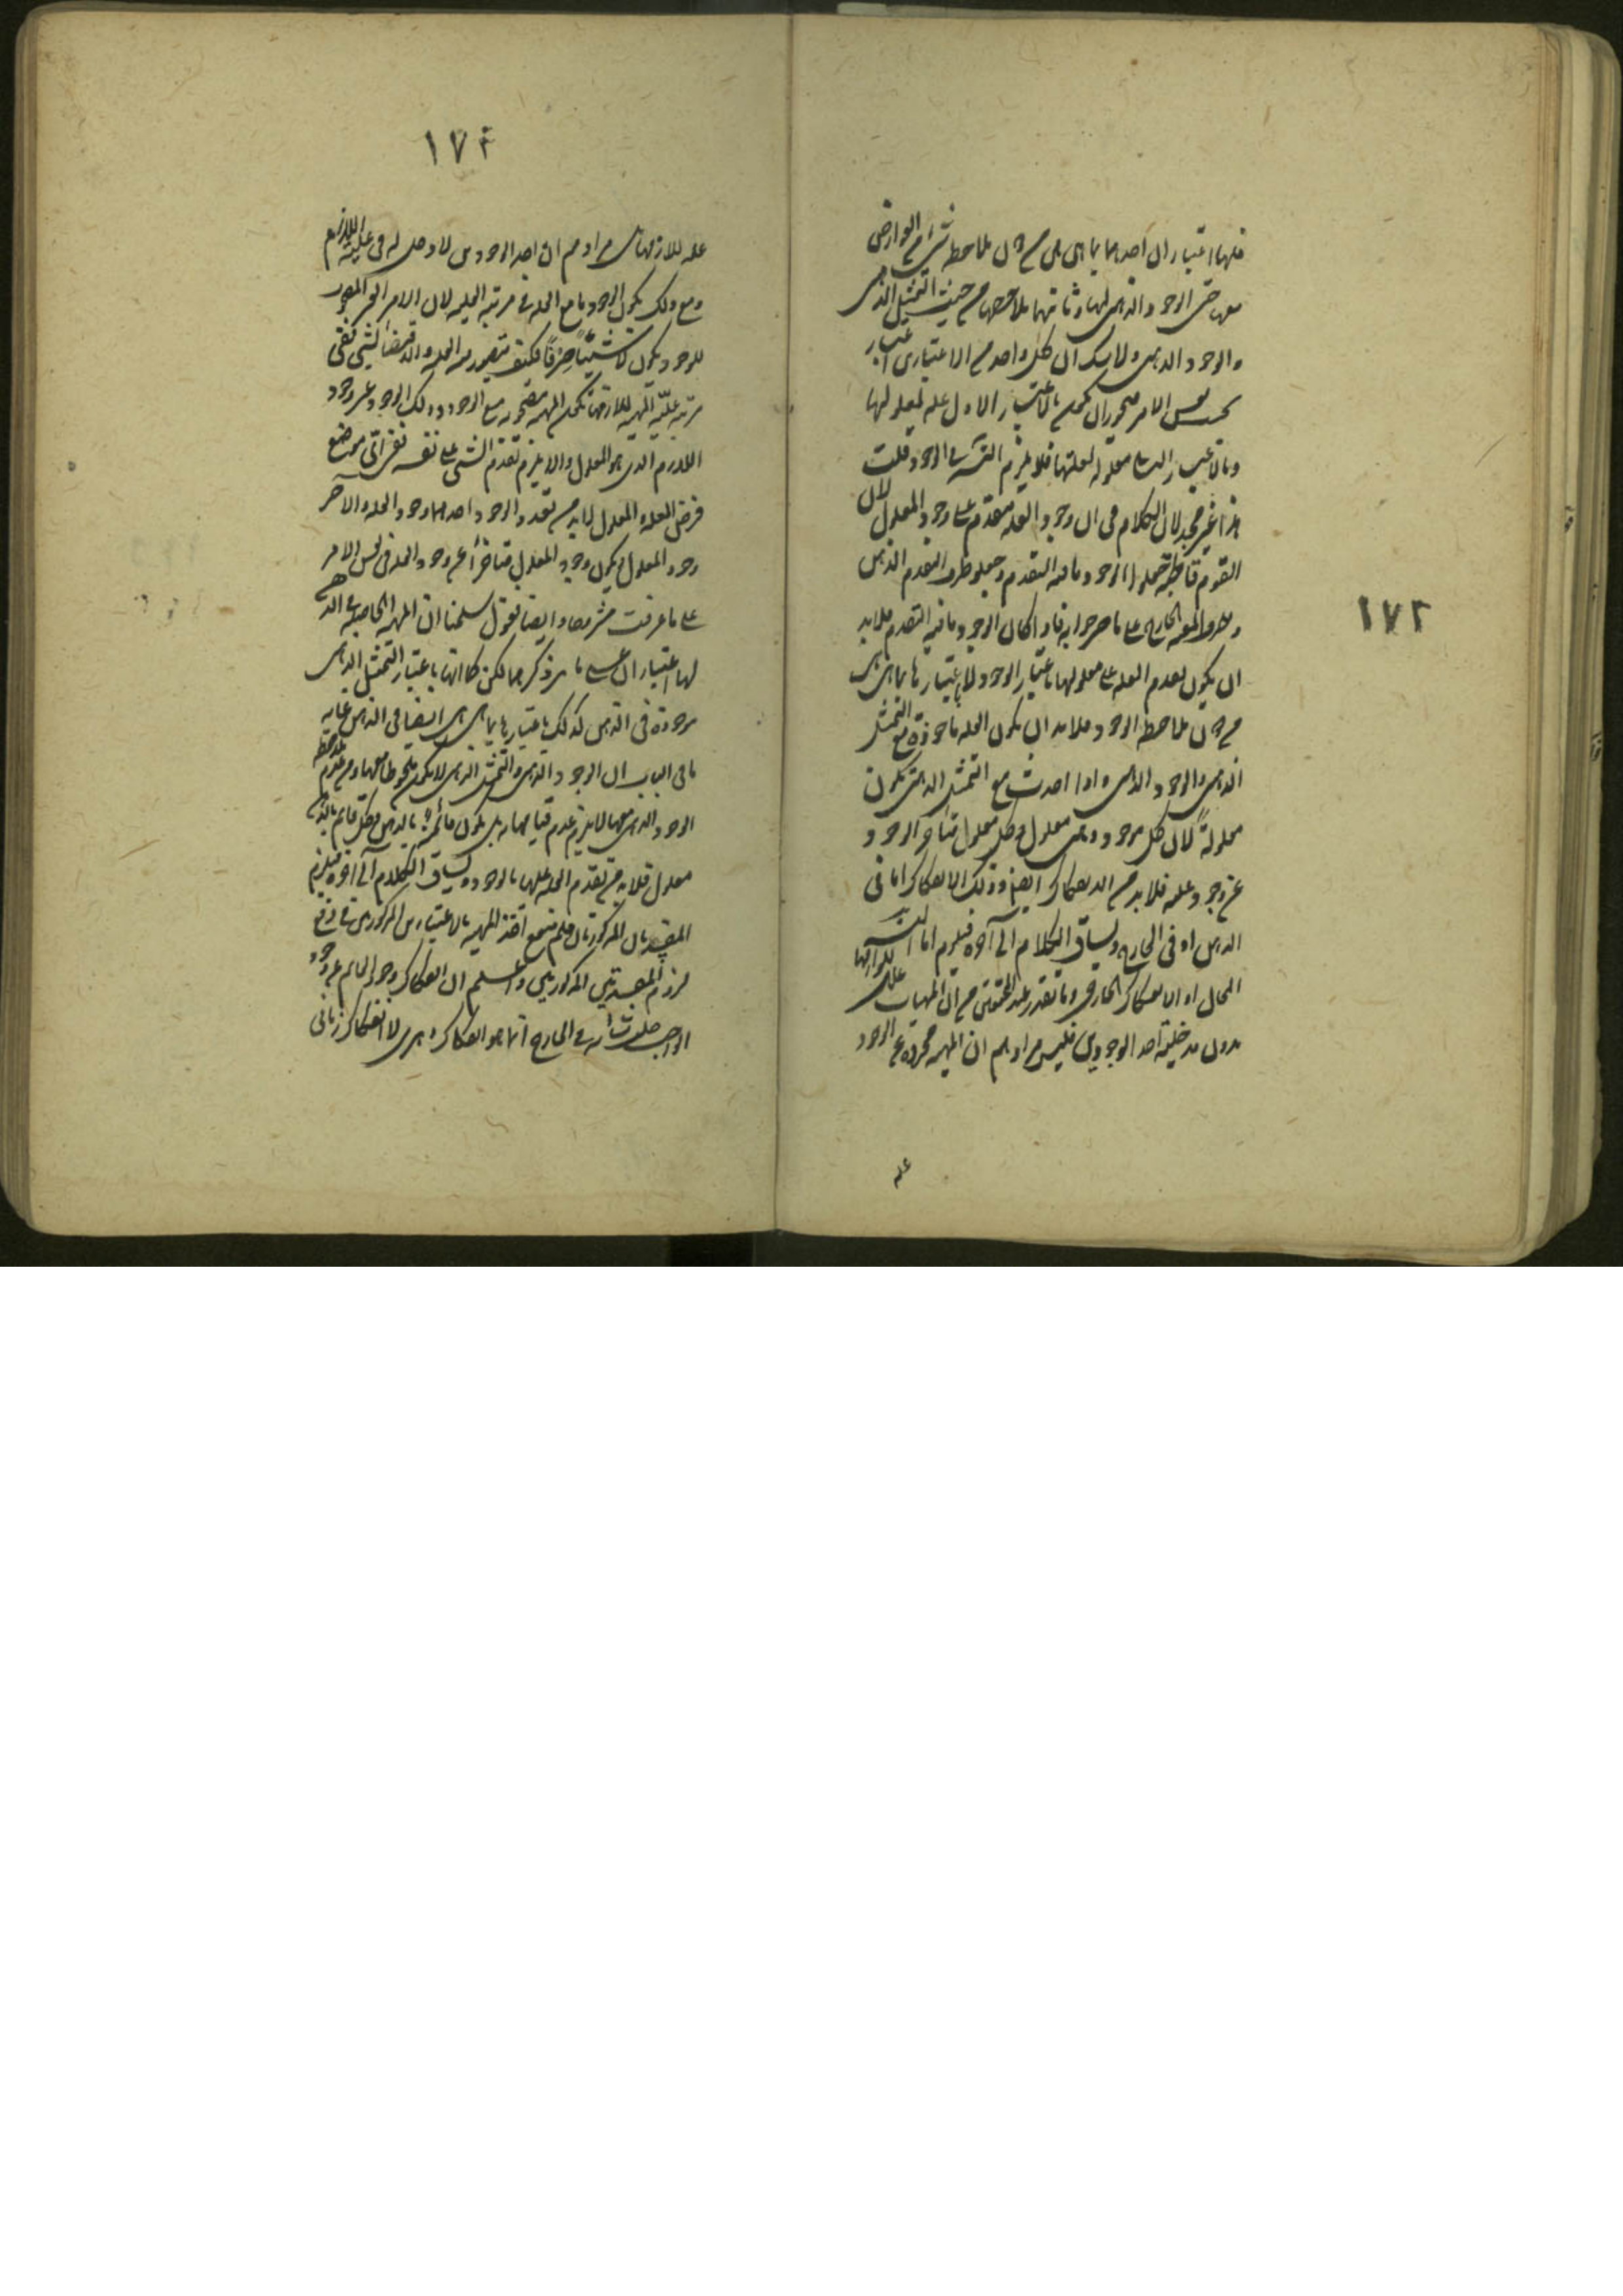 ١٧٣
فلها اعتباران احدهما بما هي هي من دون ملاحظة شيء من العوارض
معها حتى الوجود الذهني لها وثانيهما ملاحظتها من حيث التمثل الذهني
والوجود الذهني ولا شك ان كل واحد من الاعتبارين اعتبار
بحسب نفس الامر فيجوز ان تكون بالاعتبار الاول علة لمعلولها
وبالاعتبار الثاني معلولة لعلتها فلا يلزم في الوجود قلت
هذا غير مجد لان الكلام في ان وجود العلة متقدم على وجود المعلول لان
القوم قاطبة جعلوا الوجود ما فيه التقدم وجعلوا ظرف التقدم الذهن
وظرف المعية الخارج على ما صرحوا به فاذا كان الوجود ما فيه التقدم فلابد
ان يكون تقدم العلة على معلولها باعتبار الوجود لا باعتبارها بما هي هي
من دون ملاحظة الوجود فلابد ان يكون العلة ماخوذة مع التمثل
الذهني والوجود الذهني واذا اخذت مع التمثل الذهني تكون
معلولةً لان كل موجود ذهني معلول وكل معلول متاخر الوجود
عن وجود علته فلابد من الانفكاك ايضا وذلك الانفكاك اما في
الذهن او في الخارج ويساق الكلام الى آخره فيلزم اما
المحال او الانفكاك الخارجي وما تقرر عند المحققين من ان المهيات علل للوازمها
بدون مدخلية احد الوجودين فليس مرادهم ان المهية مجردة عن الوجود
علة
١٧٤
علة للازمها بل مرادهم ان احد الوجودين لا دخل له في علية اللازم
ومع ذلك يكون الوجود ما مع العلة في مرتبة العلية لان الامر الغير
للوجود يكون لا شيئًا صِرفًا فكيف يتصور منه العلية والاقتضاء لشيء ففي
مرتبة علّية المهية للازمها تكون المهية مصحوبة مع الوجود وذلك الوجود غير وجود
اللازم الذي هو المعلول والا يلزم تقدم الشيء على نفسه ففي اي موضع
فرض العلة والمعلول لابد من تعدد الوجود احدهما وجود العلة والآخر
وجود المعلول ويكون وجود المعلول متاخراً عن وجود العلة في نفس الامر
على ما عرفت مشروحا وايضا نقول سلمنا ان المهية الحاصلة في الذهن
لها اعتباران على ما مر ذكرهما لكن كما انها باعتبار التمثل الذهني
موجودة في الذهن كذلك باعتبارها بما هي هي ايضا في الذهن غاية
ما في الباب ان الوجود الذهني والتمثل الذهني لا يكون ملحوظا معها ومن عدم ملاحظة
الوجود الذهني معها لا يلزم عدم قيامها به بل يكون قائمة بالذهن وكل قائم بالذهن
معلول فلابد من تقدم العلة عليها بالوجود ويساق الكلام الى آخره فيلزم
المفسدتان المذكورتان فلم ينفع اخذ المهية بالاعتبارين المذكورين في دفع
لزوم المفسدتين المذكورتين واعلم ان انفكاك وجود العالم عن وجود
الواجب جلت في الخارج انما هو انفكاك دهري لا انفكاك زماني